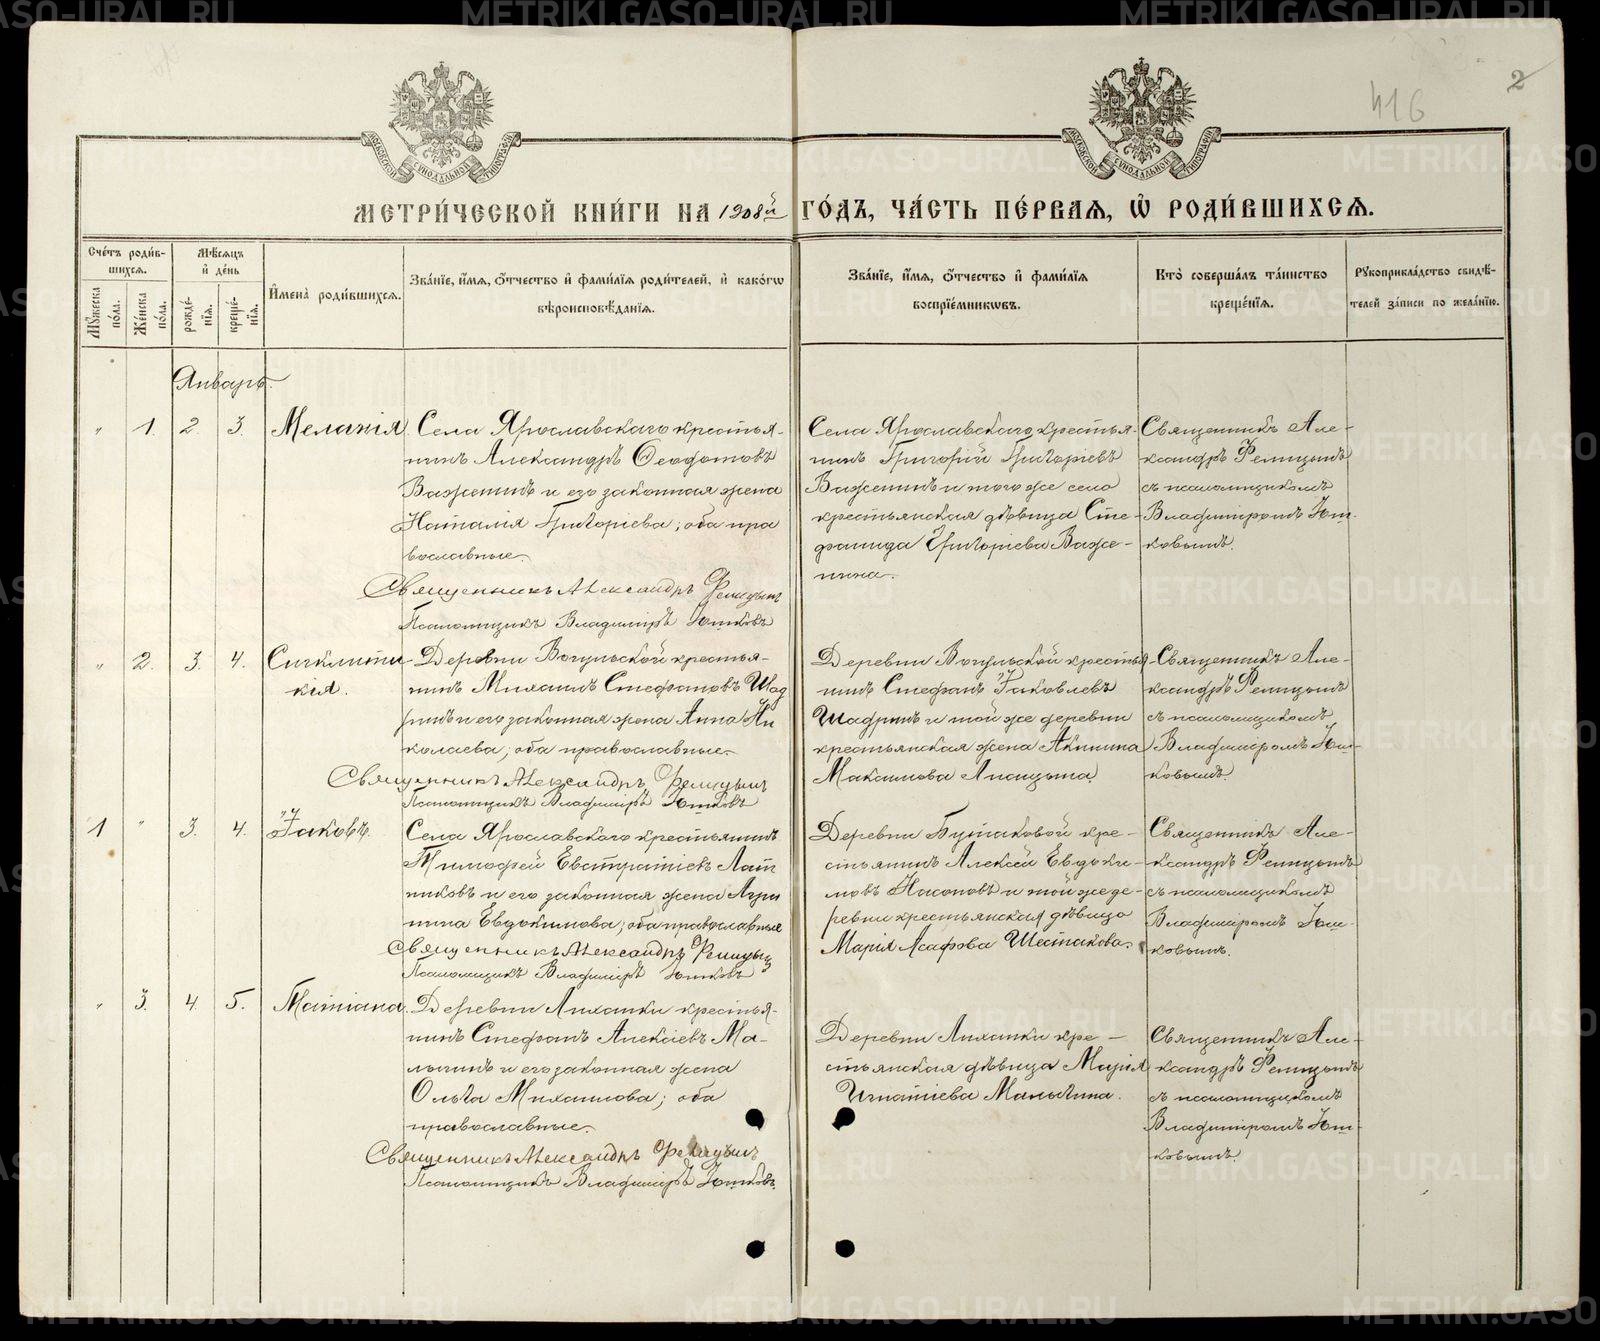 METRIKI.GASO-URAL.RU
416
2
МОСКОВСКОЙ СѴНОДАЛЬНОЙ ТИПОГРАФІИ
МЕТРИ́ЧЕСКОЙ КНИ́ГИ НА 1908й ГО́ДЪ, ЧА́СТЬ ПЕ́РВАЯ, Ѡ҆ РОДИ́ВШИХСЯ.
Сче́тъ роди́вшихся.
Мꙋ́жеска по́ла.
Же́нска по́ла.
Мѣ́сяцъ и҆ де́нь
рожде́нїя.
креще́нїя.
И҆мена̀ роди́вшихся.
Зва́нїе, и҆́мя, ѻ҆́тчество и҆ фами́лїя роди́телей, и҆ како́гѡ
вѣроисповѣ́данїя.
Зва́нїе, и҆́мя, ѻ҆́тчество и҆ фами́лїя
воспрїе́мникѡвъ.
Кто̀ соверша́лъ та́инство
креще́нїя.
Рꙋкоприкла́дство свидѣ́-
телей за́писи по жела́нїю.
Январь.
" 1. 2 3. Меланія
Села Ярославскаго крестья-
нинъ Александръ Ѳеодотовъ
Важенинъ и его законная жена
Наталія Григоріева; оба пра
вославные.
Священникъ Александръ Фелицынъ
Псаломщикъ Владиміръ Юшковъ
Села Ярославскаго крестья-
нинъ Григорій Григоріевъ
Важенинъ и того же села
крестьянская дѣвица Сте-
фанида Григоріева Важе-
нина.
Священникъ Але-
ксандръ Фелицынъ
съ псаломщикомъ
Владиміромъ Юш-
ковымъ.
" 2. 3. 4. Сигклити
кія.
Деревни Вогульской крестья-
нинъ Михаилъ Стефановъ Шад
ринъ и его законная жена Анна Ни
колаева; оба православные.
Священникъ Александръ Фелицынъ
Псаломщикъ Владиміръ Юшковъ
Деревни Вогульской крестья-
нинъ Стефанъ Іаковлевъ
Шадринъ и той же деревни
крестьянская жена Акилина
Максимова Лисицына.
Священникъ Але-
ксандръ Фелицынъ
съ псаломщикомъ
Владиміромъ Юш-
ковымъ.
1 " 3. 4. Іаковъ.
Села Ярославскаго крестьянинъ
Тимофей Евстратіевъ Лап
тиковъ и его законная жена Агри
пина Евдокимова; оба православные
Священникъ Александръ Фелицынъ
Псаломщикъ Владиміръ Юшковъ
Деревни Бутаковой кре-
стьянинъ Алексей Евдоки-
мовъ Насоновъ и той же де-
ревни крестьянская дѣвица
Марія Асафова Шестакова.
Священникъ Але-
ксандръ Фелицынъ
съ псаломщикомъ
Владиміромъ Юш-
ковымъ.
" 3. 4. 5. Татіана.
Деревни Лиханки крестья-
нинъ Стефанъ Алексіевъ Ма-
лыгинъ и его законная жена
Ольга Михаилова; оба
православные.
Священникъ Александръ Фелицынъ
Псаломщикъ Владиміръ Юшковъ.
Деревни Лиханки кре-
стьянская дѣвица Марія
Игнатіева Малыгина.
Священникъ Але-
ксандръ Фелицынъ
съ псаломщикомъ
Владиміромъ Юш-
ковымъ.